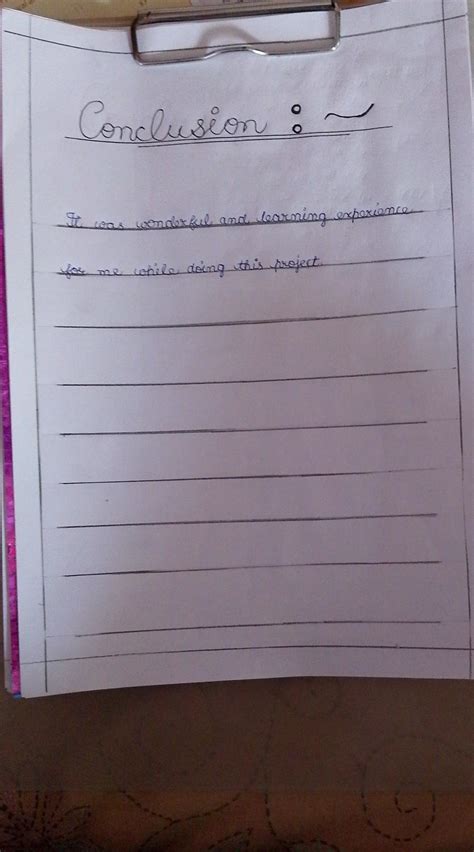 Conclusion : ~
It was wonderful and learning experience
for me while doing this project.